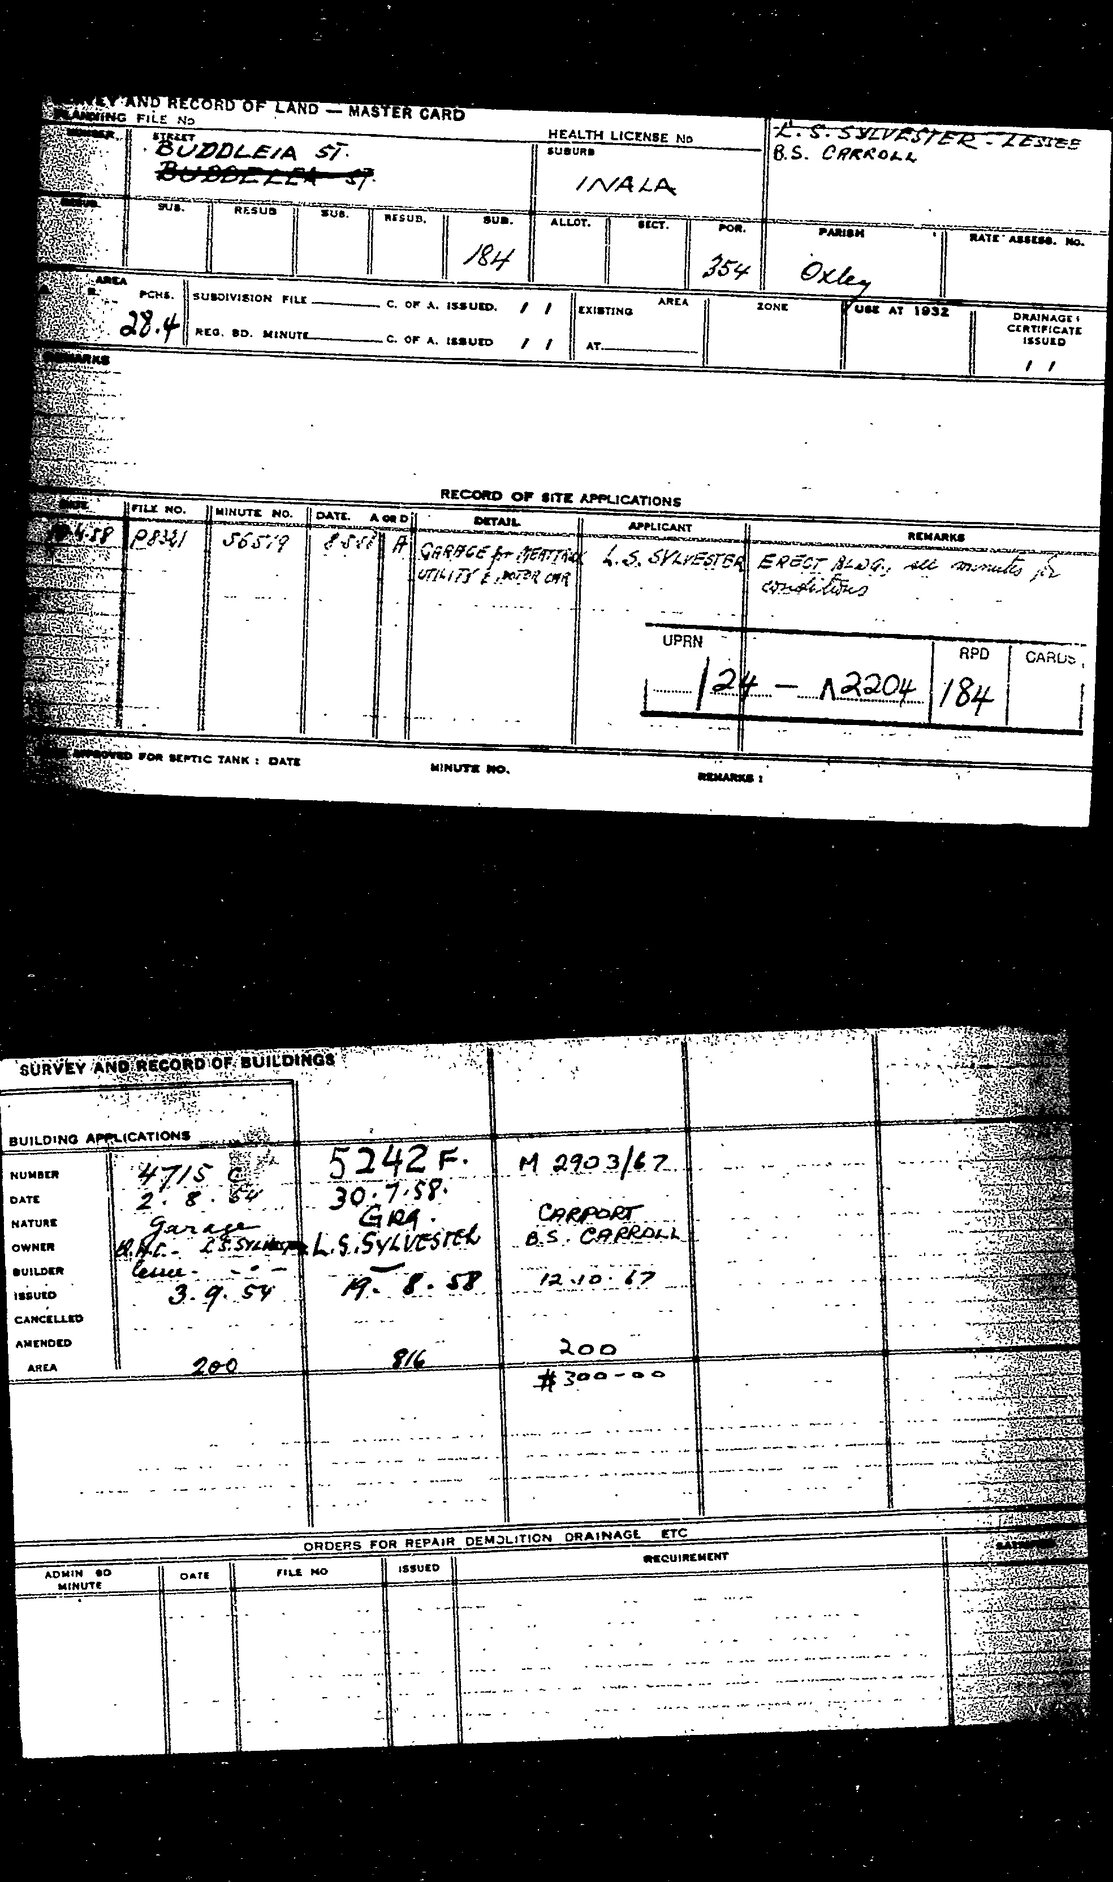 SURVEY AND RECORD OF LAND — MASTER CARD
PLANNING FILE No
HEALTH LICENSE No
L. S. SYLVESTER - LESSEE
B.S. CARROLL
NUMBER STREET SUBURB
BUDDLEIA ST.
BUDDELEA ST.
INALA
RESUB. SUB. RESUB SUB. RESUB. SUB. ALLOT. SECT. POR. PARISH RATE ASSESS. No.
184 354 Oxley
AREA
R. PCHS. SUBDIVISION FILE C. OF A. ISSUED. / / EXISTING AREA ZONE USE AT 1932 DRAINAGE CERTIFICATE ISSUED
28.4 REG. BD. MINUTE C. OF A. ISSUED / / AT / /
REMARKS
RECORD OF SITE APPLICATIONS
DATE FILE NO. MINUTE NO. DATE. A OR D DETAIL APPLICANT REMARKS
.4.58 P8321 56519 8.5.58 A GARAGE for MEAT TRUCK L.S. SYLVESTER ERECT BLDG; see minutes for
UTILITY & MOTOR CAR conditions
UPRN RPD CARDS
124 — 12204 184
APPROVED FOR SEPTIC TANK : DATE MINUTE NO. REMARKS :
SURVEY AND RECORD OF BUILDINGS
BUILDING APPLICATIONS
NUMBER 4715 C 5242 F. M 2903/67
DATE 2. 8. 54 30.7.58.
NATURE Garage GRA. CARPORT
OWNER L.S. SYLVESTER L.S. SYLVESTER B.S. CARROLL
BUILDER lessee - " -
ISSUED 3.9.54 19. 8. 58 12.10.67
CANCELLED
AMENDED
AREA 200 816 200
$300-00
ORDERS FOR REPAIR DEMOLITION DRAINAGE ETC
ADMIN BD MINUTE DATE FILE NO ISSUED REQUIREMENT